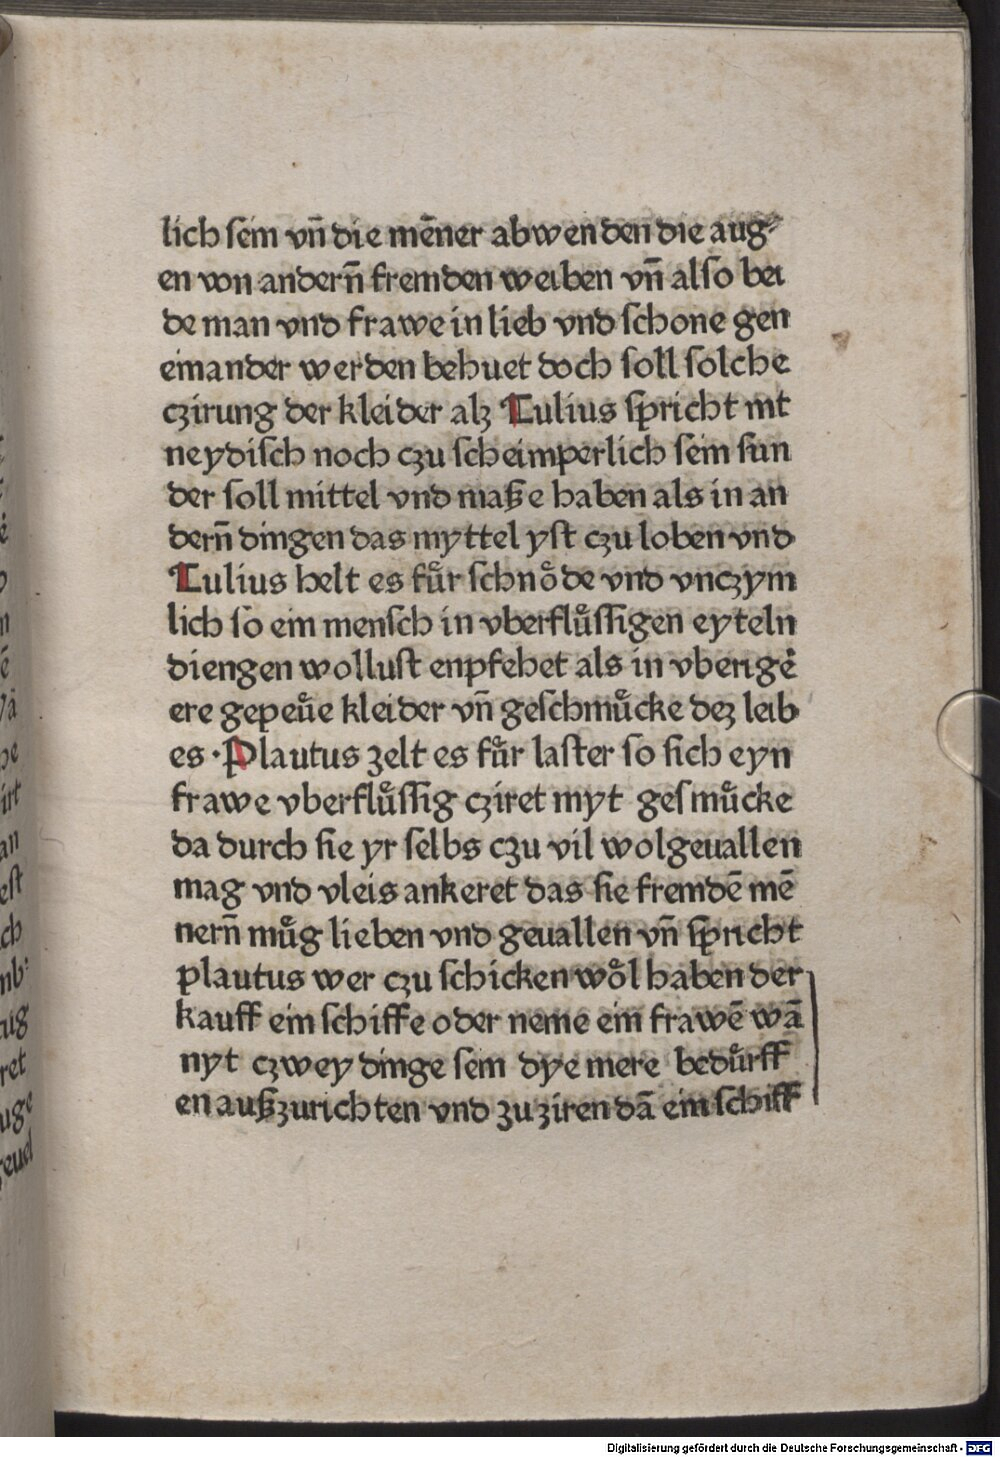 lich sein vñ die mēner abwenden die aug⸗
en von anderñ fremden weiben vñ also bei
de man vnd frawe in lieb vnd schone gen
einander werden behuet doch soll solche
czirung der kleider alz Tulius spricht nit
neydisch noch czu scheimperlich sein sun
der soll mittel vnd maße haben als in an
derñ dingen das myttel yst czu loben vnd
Tulius helt es fuͤr schnoͤde vnd vnczym
lich so ein mensch in vberfluͤssigen eyteln
diengen wollust enpfehet als in vbengē
ere gepeuͤe kleider vñ geschmuͤcke dez leib
es · Plautus zelt es fuͤr laster so sich eyn
frawe vberfluͤssig cziret myt gesmuͤcke
da durch sie yr selbs czu vil wolgeuallen
mag vnd vleis ankeret das sie fremdē mē
nerñ muͤg lieben vnd geuallen vñ spricht
plautus wer czu schicken woͤl haben der
kauff ein schiffe oder neme ein frawē wā
nyt czwey dinge sein dye mere beduͤrff
en außzurichten vnd zu ziren dā ein schiff
Digitalisierung gefördert durch die Deutsche Forschungsgemeinschaft - DFG